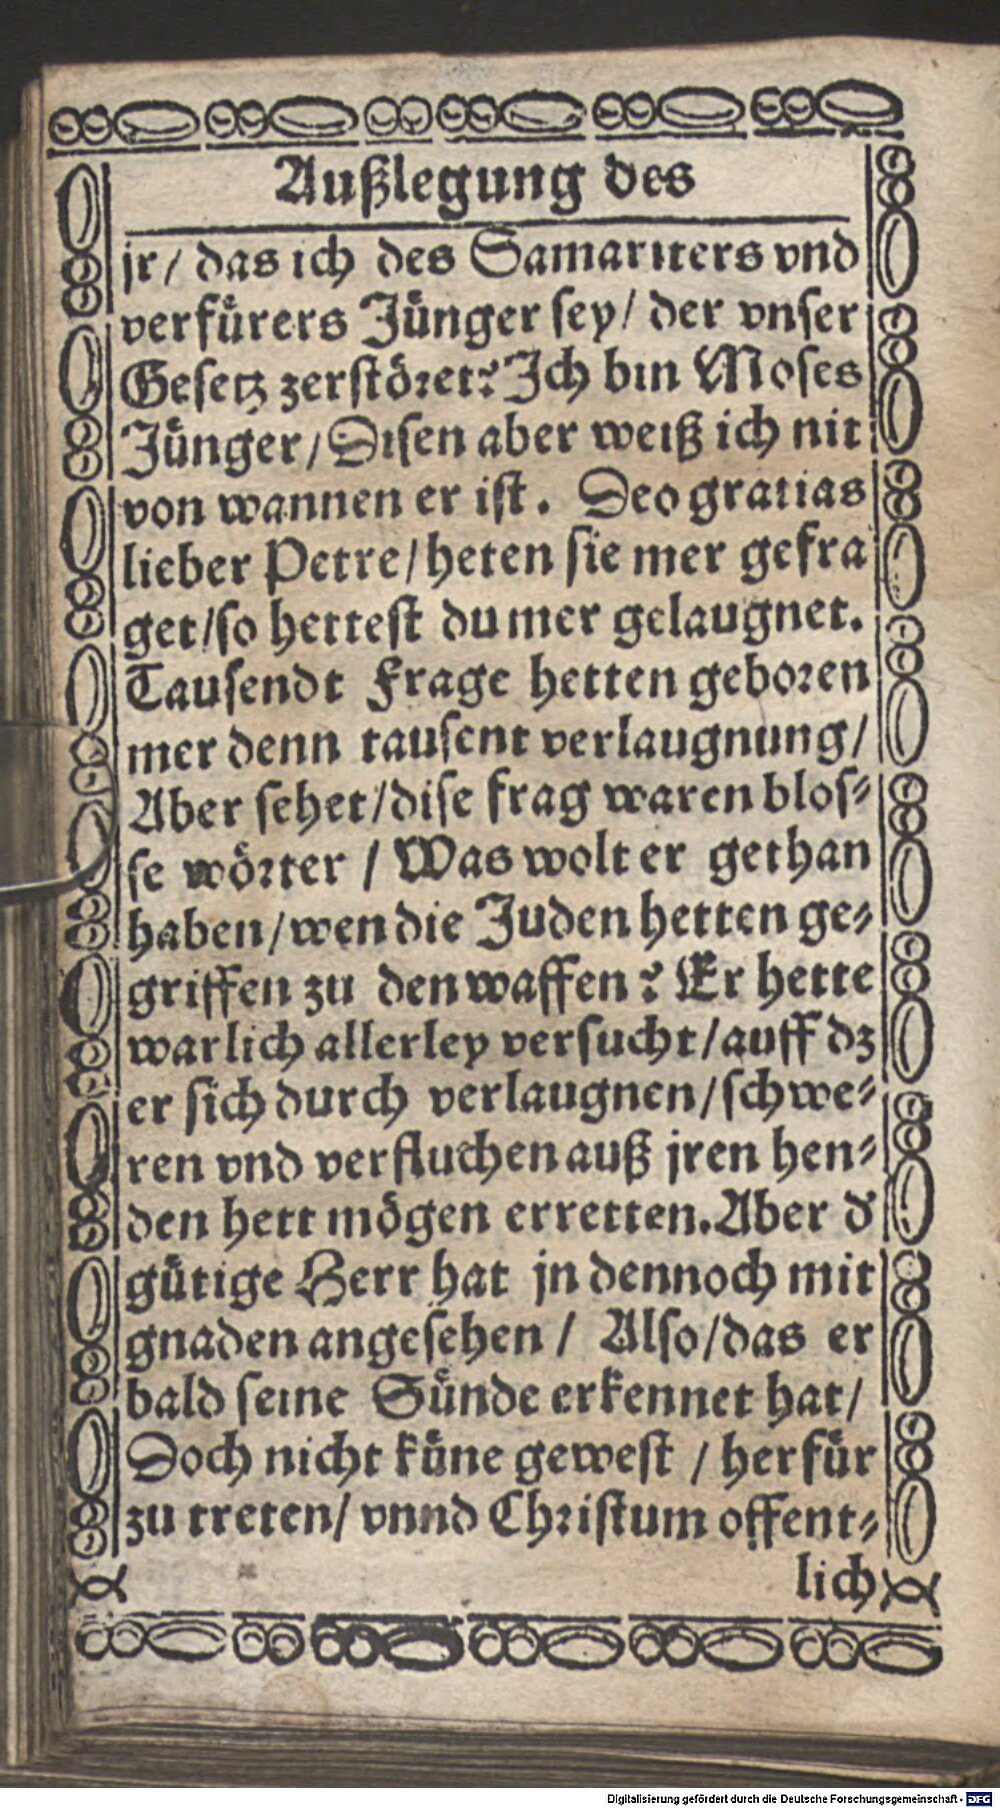 Außlegung des
jr/ das ich des Samariters vnd
verfürers Jünger sey/ der vnser
Gesetz zerstöret? Ich bin Moses
Jünger/ Disen aber weiß ich nit
von wannen er ist. Deo gratias
lieber Petre/ heten sie mer gefra
get/ so hettest du mer gelaugnet.
Tausendt Frage hetten geboren
mer denn tausent verlaugnung/
Aber sehet/ dise frag waren blos-
se wörter / Was wolt er gethan
haben/ wen die Juden hetten ge-
griffen zu den waffen? Er hette
warlich allerley versucht/ auff dz
er sich durch verlaugnen/ schwe-
ren vnd verfluchen auß jren hen-
den hett mögen erretten. Aber d'
gütige Herr hat jn dennoch mit
gnaden angesehen / Also/ das er
bald seine Sünde erkennet hat/
Doch nicht küne gewest / herfür
zu treten/ vnnd Christum offent-
lich
Digitalisierung gefördert durch die Deutsche Forschungsgemeinschaft - DFG